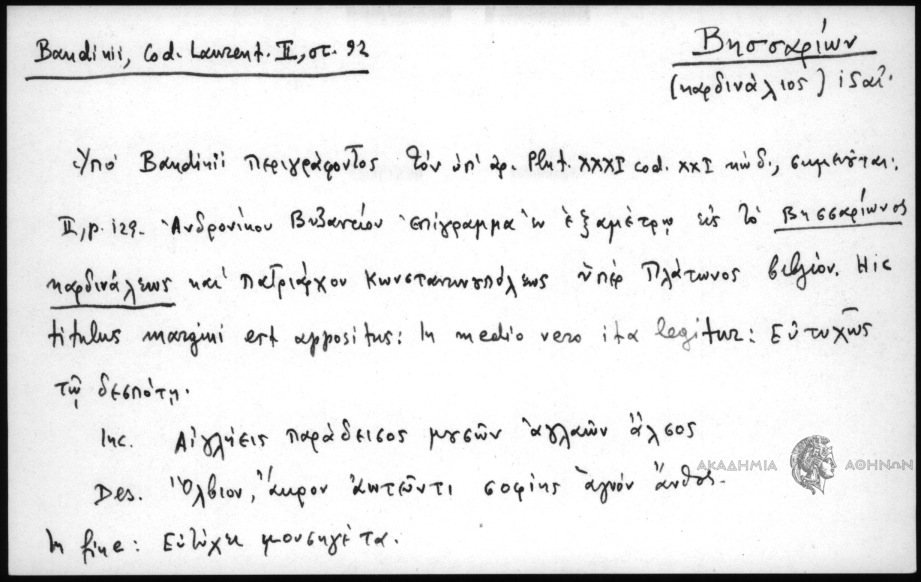 Bandinii, Cod. Laurent. II, στ. 92
Βησσαρίων
(καρδινάλιος) ἰδαί.
Ὑπό Bandinii περιγράφοντος τόν ὑπ' ἀρ. Plut. XXXI cod. XXI κώδ., σημειοῦται:
II, p. 129. Ἀνδρονίκου Βυζαντίου ἐπίγραμμα ἐν ἑξαμέτρῳ εἰς τὸ Βησσαρίωνος
καρδινάλεως καὶ πατριάρχου Κωνσταντινουπόλεως ὑπὲρ Πλάτωνος βιβλίον. Hic
titulus margini est appositus: In medio vero ita legitur: Εὐτυχῶς
τῷ δεσπότῃ.
Inc. Αἰγλήεις παράδεισος μουσῶν ἀγλαῶν ἄλσος
ΑΚΑΔΗΜΙΑ ΑΘΗΝΩΝ
Des. Ὄλβιον, ἄκρον ἀωτεῦντι σοφίης ἁγνόν ἄνθος.
In fine: Εὐτύχει μουσηγέτα.